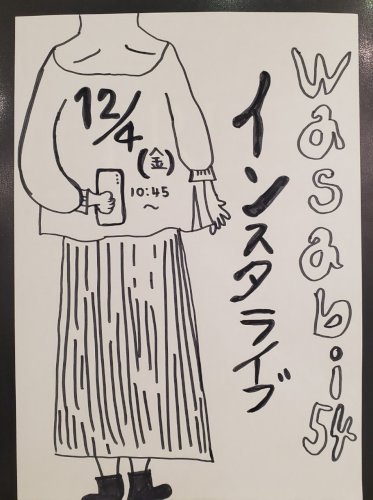 wasabi54
インスタライブ
12/4
(金)
10:45
～